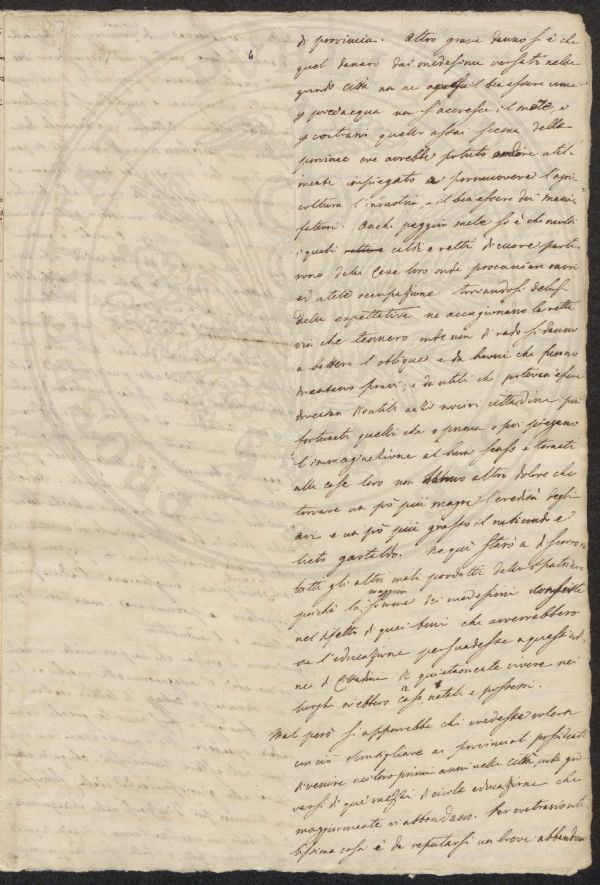 di provincia. Altro grave danno si è che
quel danaro dai medesimi versato nelle
grandi Città non ne il ben essere come
p poco acqua non s'accresce il mare, e
p contrario quello assai scema delle
provincie ove avrebbe potuto util-
mente impiegato a promuovere l'agri-
coltura l'industria, e il ben essere dei mani-
fattori. Anche peggior male si è che molti
i quali caldi e retti di cuore parti-
rono dalle case loro onde procacciare onori
ed utile occupazione trovandosi delusi
delle espettative ne accagionano la retta
via che tennero, onde non di rado si danno
a battere l'obliqua e da buoni che furono
diventano pravi; e da utili che potevan essere
diventan inutili anzi nocivi cittadini più
fortunati quelli che o prima o poi piegano
l'immaginazione al buon senso e tornati
alle case loro non altro dolore che
trovare un pò più magra l'eredità degli
avi e un pò più grasso il rubicondo e
lieto gastaldo. Ne quì starò a discorrere
tutti gli altri mali prodotti dallo spatriare
poichè la maggior somma dei medesimi consiste
nel difetto di quei beni che avverrebbero
se l'educazione persuadesse a quest'ordi-
ne di Cittadini di quietamente vivere nei
luoghi ov'ebbero case natali e possessi.
Mal però si apporrebbe chi credesse volersi
con ciò consigliare ai provinciali possidenti
di venire nei loro primi anni nelle Città, onde gio-
varsi di quei mezzi di civile educazione che
maggiormente vi abbondano. Per contrario uti-
lissima cosa è da reputarsi un breve abbandono